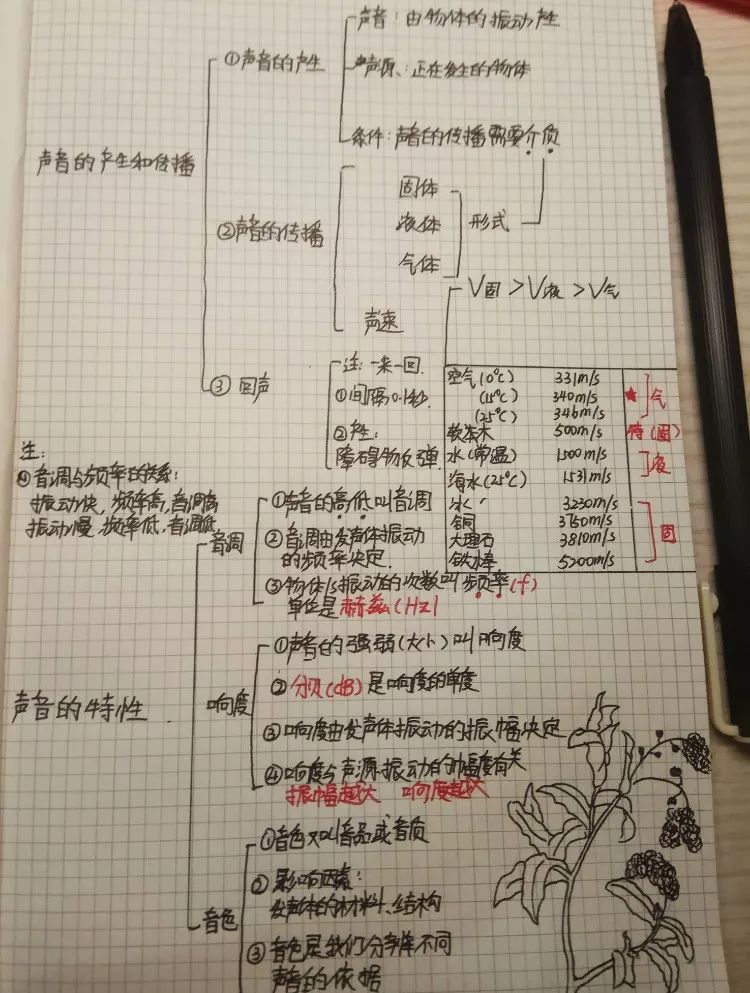 声音的产生和传播
①声音的产生
声音:由物体的振动产生
*声源:正在发生的物体
条件:声音的传播需要介质
②声音的传播
固体
液体
气体
形式
声速
V固>V液>V气
③回声
注:一来一回.
①间隔0.1秒.
②产生:
障碍物反弹.
空气(0℃) 331m/s
(15℃) 340m/s
(25℃) 346m/s
★气
软木 500m/s 特(固)
水(常温) 1500m/s
海水(25℃) 1531m/s
液
冰 3230m/s
铜 3750m/s
大理石 3810m/s
铁棒 5200m/s
固
注:
①音调与频率的关系:
振动快,频率高,音调高
振动慢,频率低,音调低
声音的特性
音调
①声音的高低叫音调
②音调由发声体振动
的频率决定.
③物体1s振动的次数叫频率(f)
单位是赫兹(Hz)
响度
①声音的强弱(大小)叫响度
②分贝(dB)是响度的单度
③响度由发声体振动的振幅决定
④响度与声源振动的幅度有关
振幅越大 响度越大
音色
①音色又叫音品或音质
②影响因素:
发声体的材料、结构
③音色是我们分辨不同
声音的依据